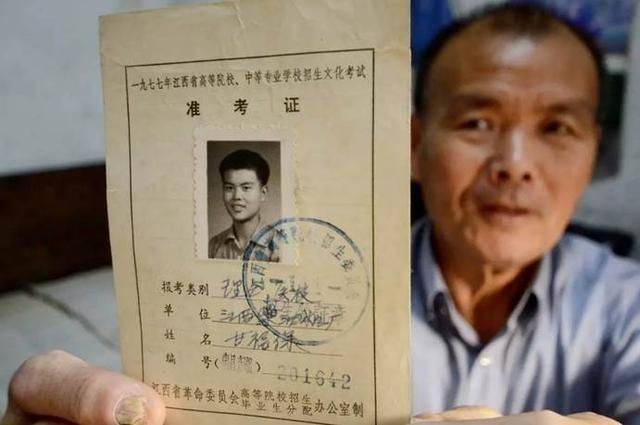 一九七七年江西省高等院校、中等专业学校招生文化考试
准考证
报考类别 理
单位 江西
姓名 甘福保
编号( ) 201642
江西省革命委员会 高等院校招生
毕业生分配 办公室制